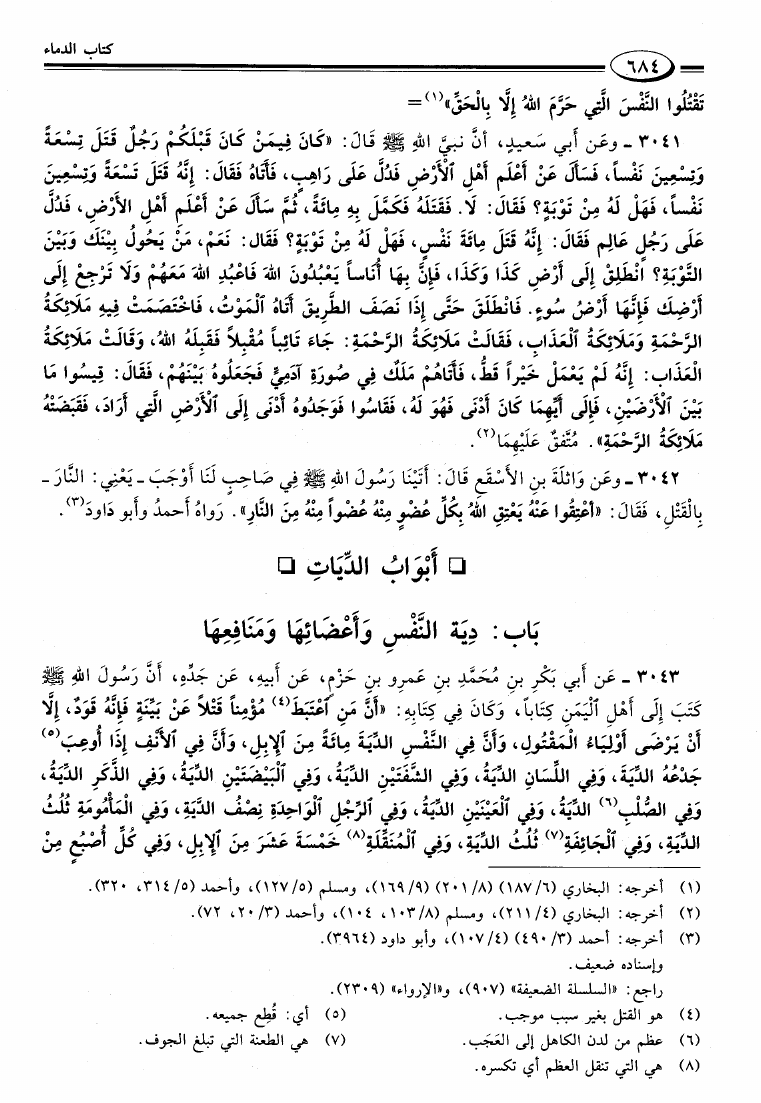 كتاب الدماء
٦٨٤
تَقْتُلُوا النَّفْسَ الَّتِي حَرَّمَ اللهُ إِلَّا بِالْحَقِّ»(١)=
٣٠٤١ ـ وعَن أبي سَعيدٍ، أنَّ نبيَّ اللهِ ﷺ قَالَ: «كَانَ فِيمَنْ كَانَ قَبْلَكُمْ رَجُلٌ قَتَلَ تِسْعَةً
وَتِسْعِينَ نَفْساً، فَسَأَلَ عَنْ أَعْلَمِ أَهْلِ الْأَرْضِ فَدُلَّ عَلَى رَاهِبٍ، فَأَتَاهُ فَقَالَ: إِنَّهُ قَتَلَ تَسْعَةً وَتِسْعِينَ
نَفْساً، فَهَلْ لَهُ مِنْ تَوْبَةٍ؟ فَقَالَ: لَا. فَقَتَلَهُ فَكَمَّلَ بِهِ مِائَةً، ثُمَّ سَأَلَ عَنْ أَعْلَمِ أَهْلِ الأَرْضِ، فَدُلَّ
عَلَى رَجُلٍ عَالِمٍ فَقَالَ: إِنَّهُ قَتَلَ مِائَةَ نَفْسٍ، فَهَلْ لَهُ مِنْ تَوْبَةٍ؟ فَقَالَ: نَعَمْ، مَنْ يَحُولُ بَيْنَكَ وَبَيْنَ
التَّوْبَةِ؟ انْطَلِقْ إِلَى أَرْضِ كَذَا وَكَذَا، فَإِنَّ بِهَا أُنَاساً يَعْبُدُونَ اللهَ فَاعْبُدِ اللهَ مَعَهُمْ وَلَا تَرْجِعْ إِلَى
أَرْضِكَ فَإِنَّهَا أَرْضُ سُوءٍ. فَانْطَلَقَ حَتَّى إِذَا نَصَفَ الطَّرِيقَ أَتَاهُ الْمَوْتُ، فَاخْتَصَمَتْ فِيهِ مَلَائِكَةُ
الرَّحْمَةِ وَمَلَائِكَةُ الْعَذَابِ، فَقَالَتْ مَلَائِكَةُ الرَّحْمَةِ: جَاءَ تَائِباً مُقْبِلاً فَقَبِلَهُ اللهُ، وَقَالَتْ مَلَائِكَةُ
الْعَذَابِ: إِنَّهُ لَمْ يَعْمَلْ خَيْراً قَطُّ، فَأَتَاهُمْ مَلَكٌ فِي صُورَةِ آدَمِيٍّ فَجَعَلُوهُ بَيْنَهُمْ، فَقَالَ: قِيسُوا مَا
بَيْنَ الْأَرْضَيْنِ، فَإِلَى أَيِّهِمَا كَانَ أَدْنَى فَهُوَ لَهُ، فَقَاسُوا فَوَجَدُوهُ أَدْنَى إِلَى الْأَرْضِ الَّتِي أَرَادَ، فَقَبَضَتْهُ
مَلَائِكَةُ الرَّحْمَةِ». مُتَّفقٌ عَلَيْهِمَا(٢).
٣٠٤٢ ـ وعَن وَاثِلَةَ بنِ الأَسْقَعِ قَالَ: أَتَيْنَا رَسُولَ اللهِ ﷺ فِي صَاحِبٍ لَنَا أَوْجَبَ ـ يَعْنِي: النَّارَ ـ
بِالْقَتْلِ، فَقَالَ: «أَعْتِقُوا عَنْهُ يَعْتِقِ اللهُ بِكُلِّ عُضْوٍ مِنْهُ عُضْواً مِنْهُ مِنَ النَّارِ». رَوَاهُ أَحمدُ وأَبو دَاودَ(٣).
أَبْوَابُ الدِّيَاتِ
بَاب: دِيَة النَّفْسِ وَأَعْضَائِهَا وَمَنَافِعِهَا
٣٠٤٣ ـ عَن أَبي بَكْرِ بنِ مُحَمَّدِ بنِ عَمرِو بنِ حَزْمٍ، عَن أَبيهِ، عَن جَدِّهِ، أَنَّ رَسُولَ اللهِ ﷺ
كَتَبَ إِلَى أَهْلِ الْيَمَنِ كِتَاباً، وَكَانَ فِي كِتَابِهِ: «أَنَّ مَنِ اعْتَبَطَ(٤) مُؤْمِناً قَتْلاً عَنْ بَيِّنَةٍ فَإِنَّهُ قَوَدٌ، إِلَّا
أَنْ يَرْضَى أَوْلِيَاءُ الْمَقْتُولِ، وَأَنَّ فِي النَّفْسِ الدِّيَةَ مِائَةً مِنَ الْإِبِلِ، وَأَنَّ فِي الْأَنْفِ إِذَا أُوعِبَ(٥)
جَدْعُهُ الدِّيَةَ، وَفِي اللِّسَانِ الدِّيَةُ، وَفِي الشَّفَتَيْنِ الدِّيَةُ، وَفِي الْبَيْضَتَيْنِ الدِّيَةُ، وَفِي الذَّكَرِ الدِّيَةُ،
وَفِي الصُّلْبِ(٦) الدِّيَةُ، وَفِي الْعَيْنَيْنِ الدِّيَةُ، وَفِي الرِّجْلِ الْوَاحِدَةِ نِصْفُ الدِّيَةِ، وَفِي الْمَأْمُومَةِ ثُلُثُ
الدِّيَةِ، وَفِي الْجَائِفَةِ(٧) ثُلُثُ الدِّيَةِ، وَفِي الْمُنَقِّلَةِ(٨) خَمْسَةَ عَشَرَ مِنَ الْإِبِلِ، وَفِي كُلِّ أُصْبُعٍ مِنْ
(١) أخرجه: البخاري (٦/ ١٨٧) (٨/ ٢٠١) (٩/ ١٦٩)، ومسلم (٥/ ١٢٧)، وأحمد (٥/ ٣١٤، ٣٢٠).
(٢) أخرجه: البخاري (٤/ ٢١١)، ومسلم (٨/ ١٠٣، ١٠٤)، وأحمد (٣/ ٢٠، ٧٢).
(٣) أخرجه: أحمد (٣/ ٤٩٠) (٤/ ١٠٧)، وأبو داود (٣٩٦٤).
وإسناده ضعيف.
راجع: «السلسلة الضعيفة» (٩٠٧)، و«الإرواء» (٢٣٠٩).
(٤) هو القتل بغير سبب موجب. (٥) أي: قُطِع جميعه.
(٦) عظم من لدن الكاهل إلى العَجَب. (٧) هي الطعنة التي تبلغ الجوف.
(٨) هي التي تنقل العظم أي تكسره.